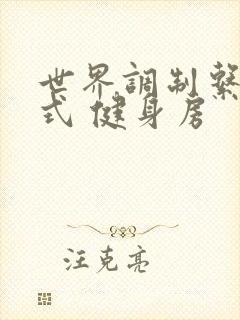 世界調制繫
式 健身房
汪克亮